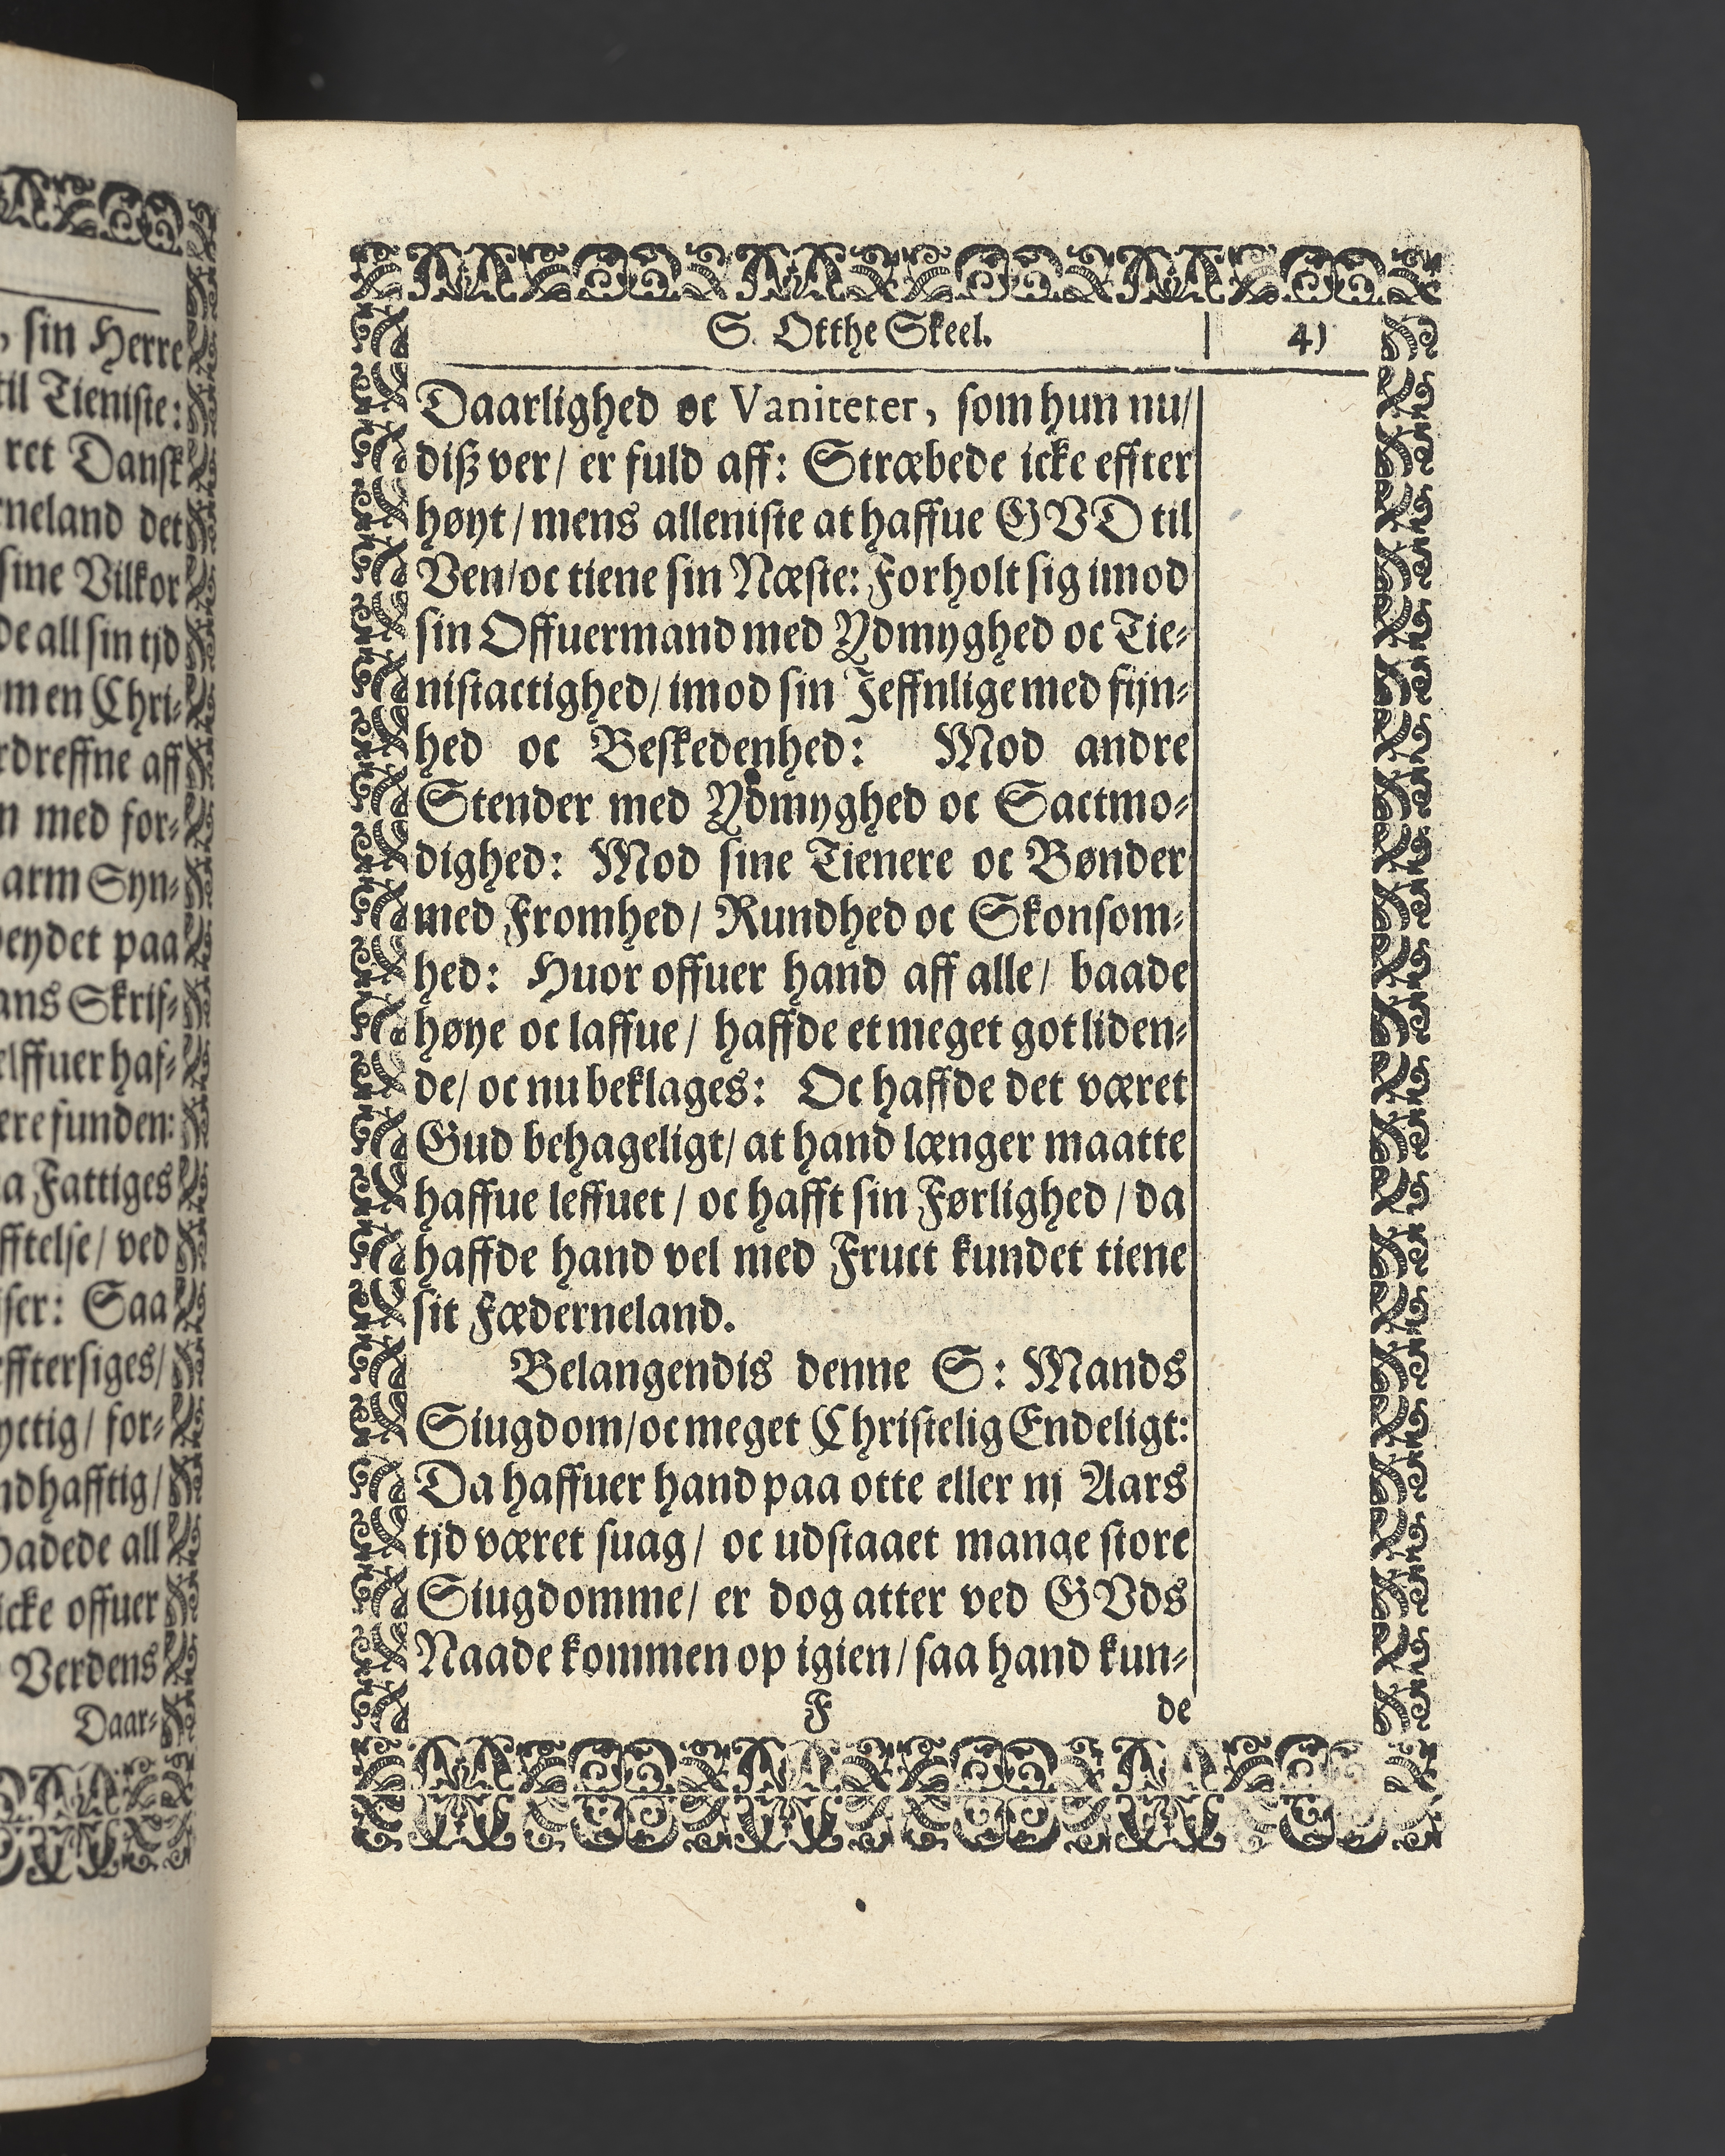 sin Herre
til Tieniste:
ret Dansk
det
sine Vilkor
all sin tjd
en Chri-
aff
med for-
arm Syn-
paa
Skrif-
funden:
Fattiges
ved
Saa
for-
all
icke offuer
Verdens
Daar-
S. Otthe Skeel. 41
Daarlighed oc Vaniteter, som hun nu/
diß ver/ er fuld aff: Stræbede icke effter
høyt/ mens alleniste at haffue GVD til
Ven/oc tiene sin Næste: Forholt sig imod
sin Offuermand med Ydmyghed oc Tie-
nistactighed/ imod sin Jeffnlige med fijn-
hed oc Beskedenhed: Mod andre
Stender med Ydmyghed oc Sactmo-
dighed: Mod sine Tienere oc Bønder
med Fromhed/ Rundhed oc Skonsom-
hed: Huor offuer hand aff alle/ baade
høye oc laffue/ haffde et meget got liden-
de/ oc nu beklages: Oc haffde det været
Gud behageligt/ at hand længer maatte
haffue leffuet/ oc hafft sin Førlighed/ da
haffde hand vel med Fruct kundet tiene
sit Fæderneland.
Belangendis denne S: Mands
Siugdom/oc meget Christelig Endeligt:
Da haffuer hand paa otte eller nj Aars
tjd været suag/ oc udstaaet mange store
Siugdomme/ er dog atter ved GVds
Naade kommen op igien/ saa hand kun-
F de